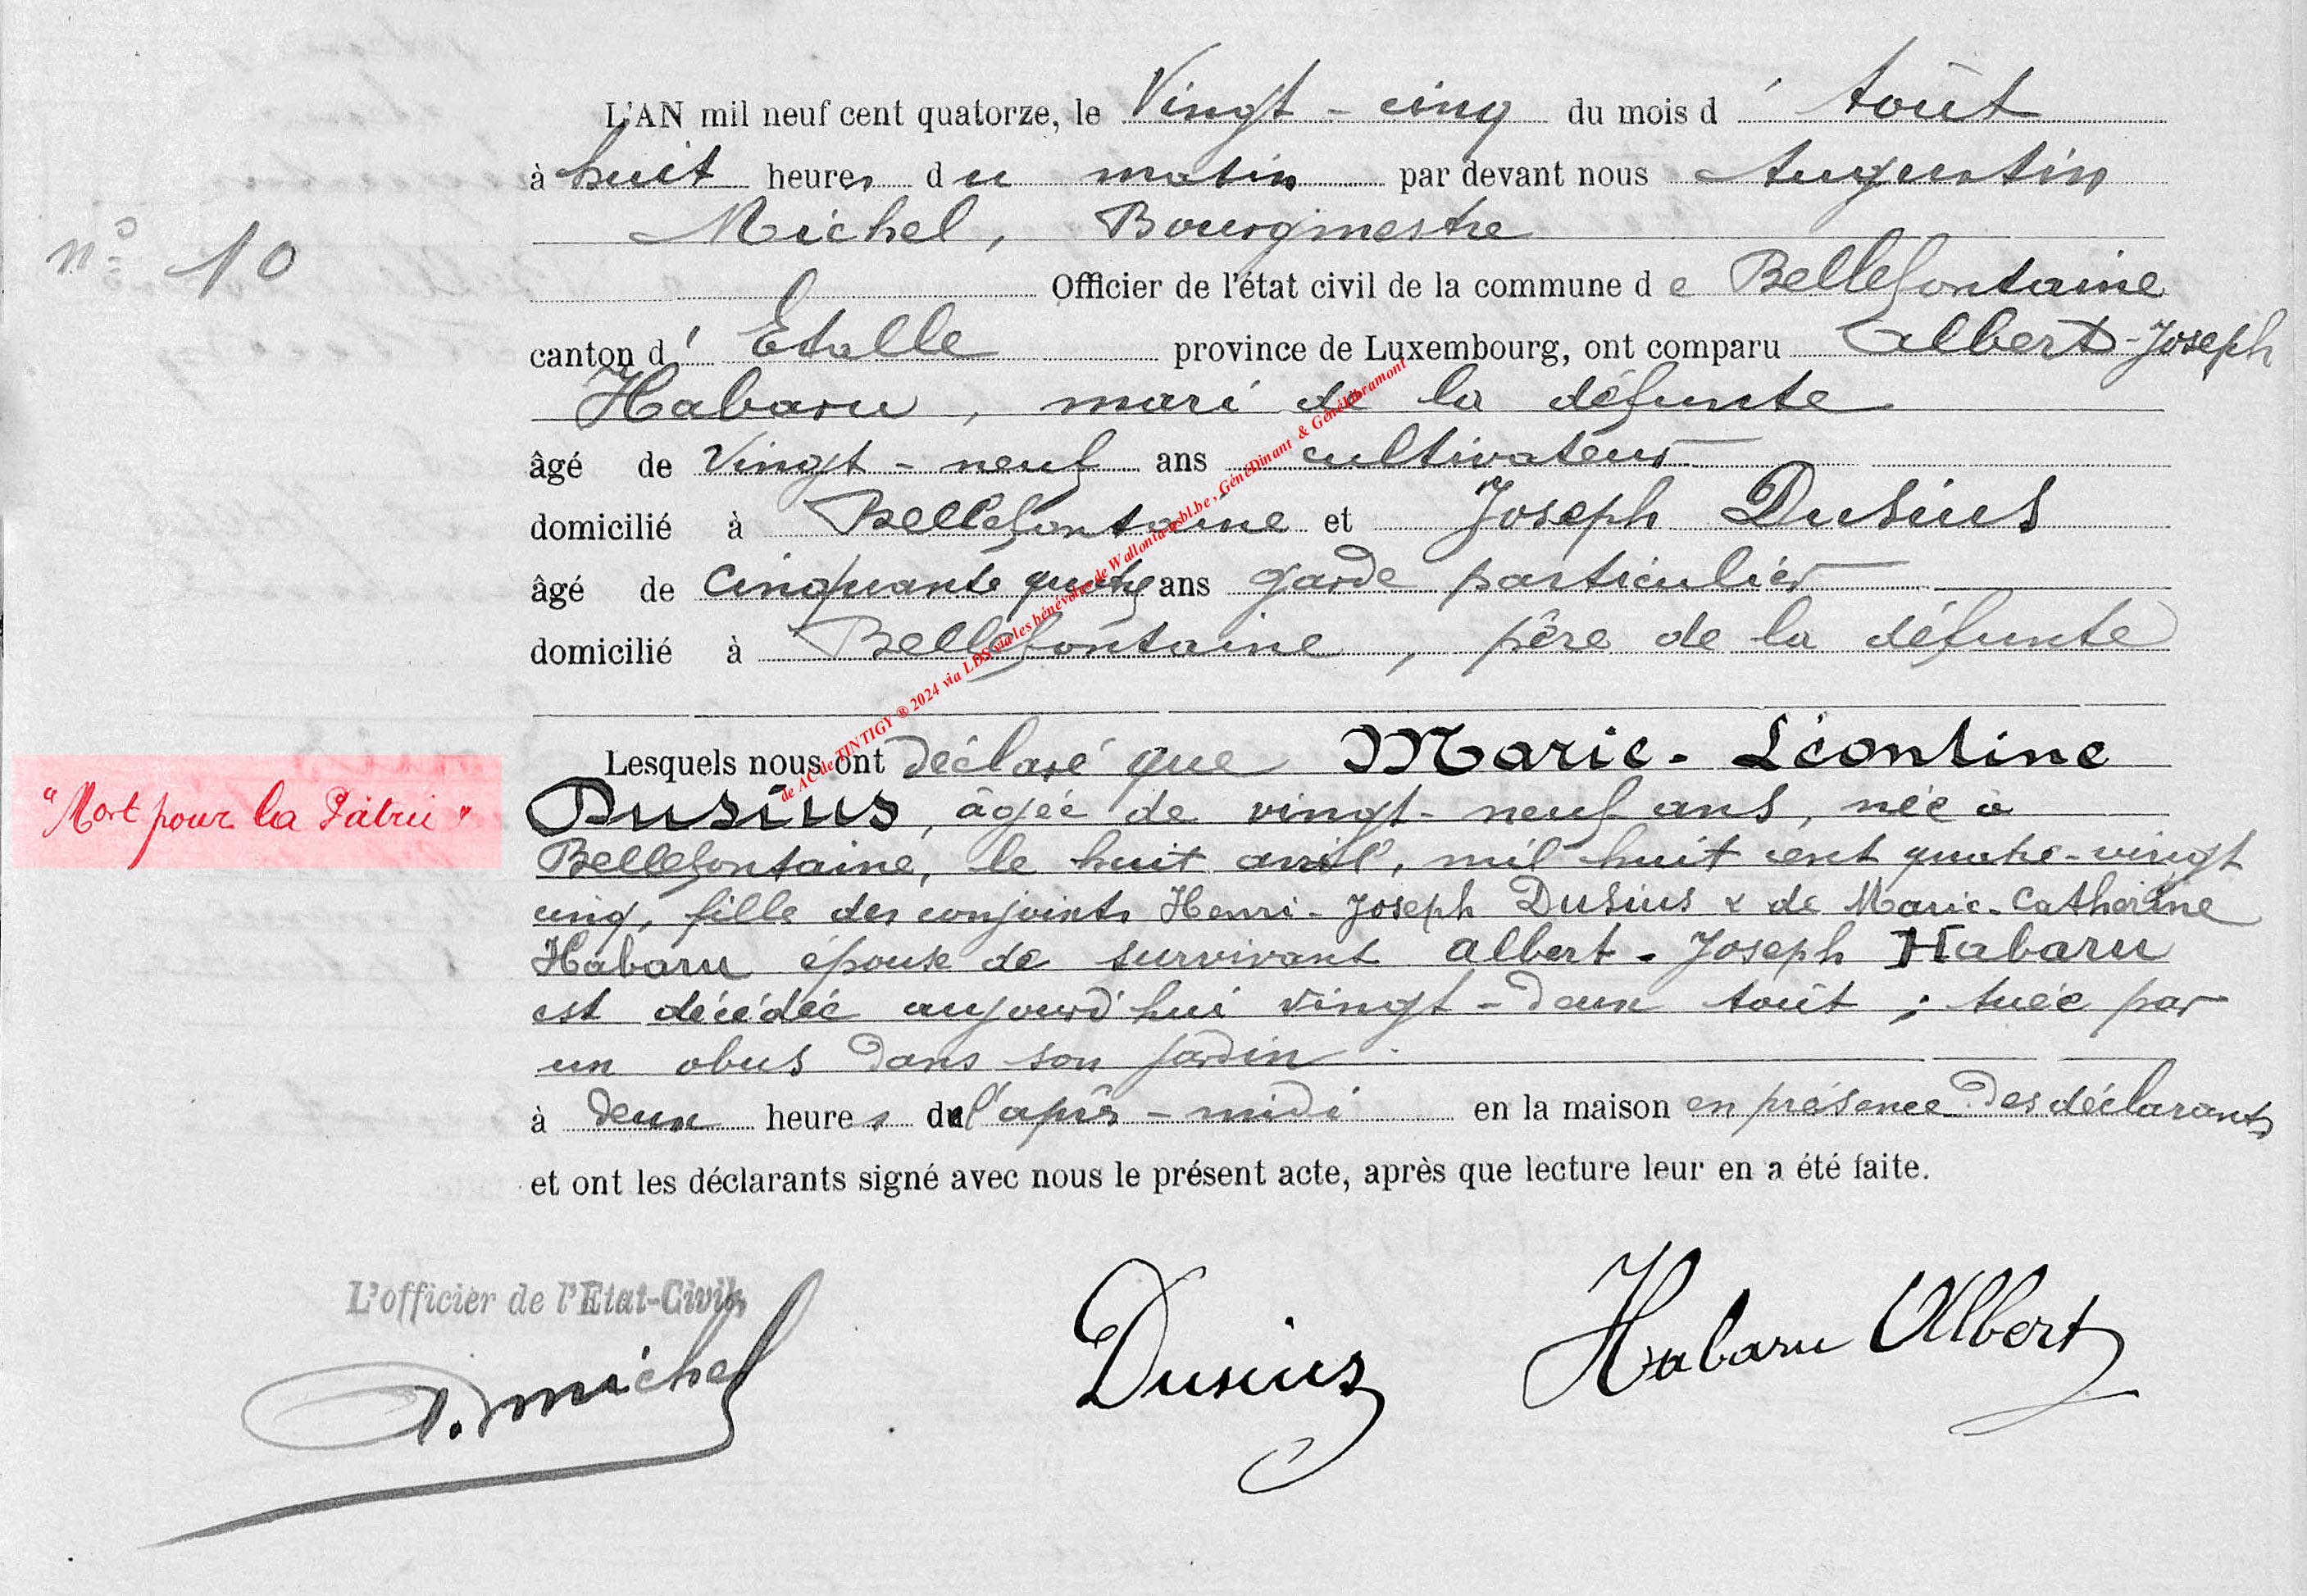 L'AN mil neuf cent quatorze, le Vingt-cinq du mois d'Août
à huit heures du matin par devant nous Augustin
Michel, Bourgmestre
n° 10
Officier de l'état civil de la commune de Bellefontaine
canton d'Etalle province de Luxembourg, ont comparu Albert-Joseph
Habaru, mari de la défunte
âgé de Vingt-neuf ans cultivateur
domicilié à Bellefontaine et Joseph Dusius
âgé de Cinquante quatre ans garde particulier
domicilié à Bellefontaine, père de la défunte
de AC de TINTIGY ® 2024 via LDS via les bénévoles de Wallonia-asbl.be, GénéDinant & GénéLibramont
Lesquels nous ont déclaré que Marie-Léontine
"Mort pour la Patrie"
Dusius, âgée de vingt-neuf ans, née à
Bellefontaine, le huit avril, mil huit cent quatre-vingt
cinq, fille des conjoints Henri-Joseph Dusius & de Marie-Catherine
Habaru épouse de survivant Albert-Joseph Habaru
est décédée aujourd'hui vingt-deux août; tuée par
un obus dans son jardin.
à deux heures de l'après-midi en la maison en présence des déclarants
et ont les déclarants signé avec nous le présent acte, après que lecture leur en a été faite.
L'officier de l'Etat-Civil,
A. Michel
Dusius
Habaru Albert